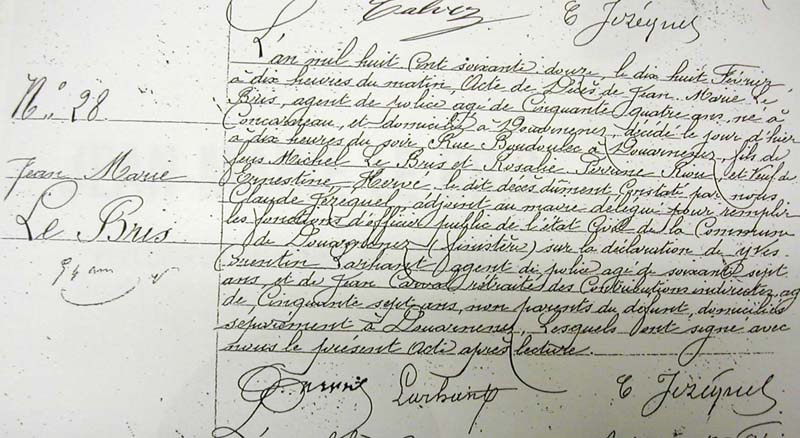 Talvez
C Jézéquel
L'an mil huit cent soixante douze, le dix huit Février
à dix heures du matin, Acte de Décès de Jean Marie Le
Bris, agent de police agé de Cinquante quatre ans né à
Concarneau, et domicilié à Douarnenez, décédé le jour d'hier
à dix heures du soir, Rue Boudoulec à Douarnenez, fils de
feus Michel Le Bris et Rosalie Perrine Riou et veuf de
Ernestine Hervé, le dit décès dûment constaté par nous
Claude Jézéquel, adjoint au maire délégué pour remplir
les fonctions d'officier public de l'état Civil de la Commune
de Douarnenez (finistère) sur la déclaration de yves
Corentin Larhant agent de police agé de soixante sept
ans, et de Jean Carval retraité des Contributions indirectes, agé
de Cinquante sept ans, non parents du défunt, domiciliés
séparément à Douarnenez, Lesquels ont signé avec
nous le présent Acte après lecture.
N° 28
Jean Marie
Le Bris
54 ans
Larhant
C Jézéquel